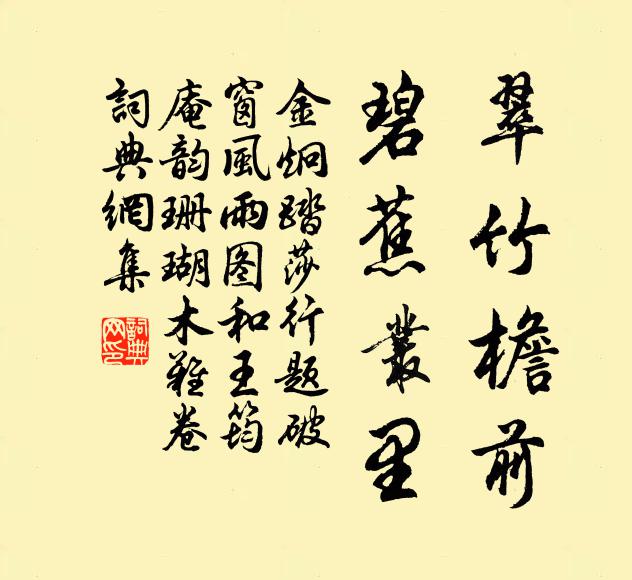 翠竹檐前
碧蕉叢里
金炯踏莎行題破
窗風雨图和王筠
庵韵珊瑚木難卷
詞典網集
詞典
网印